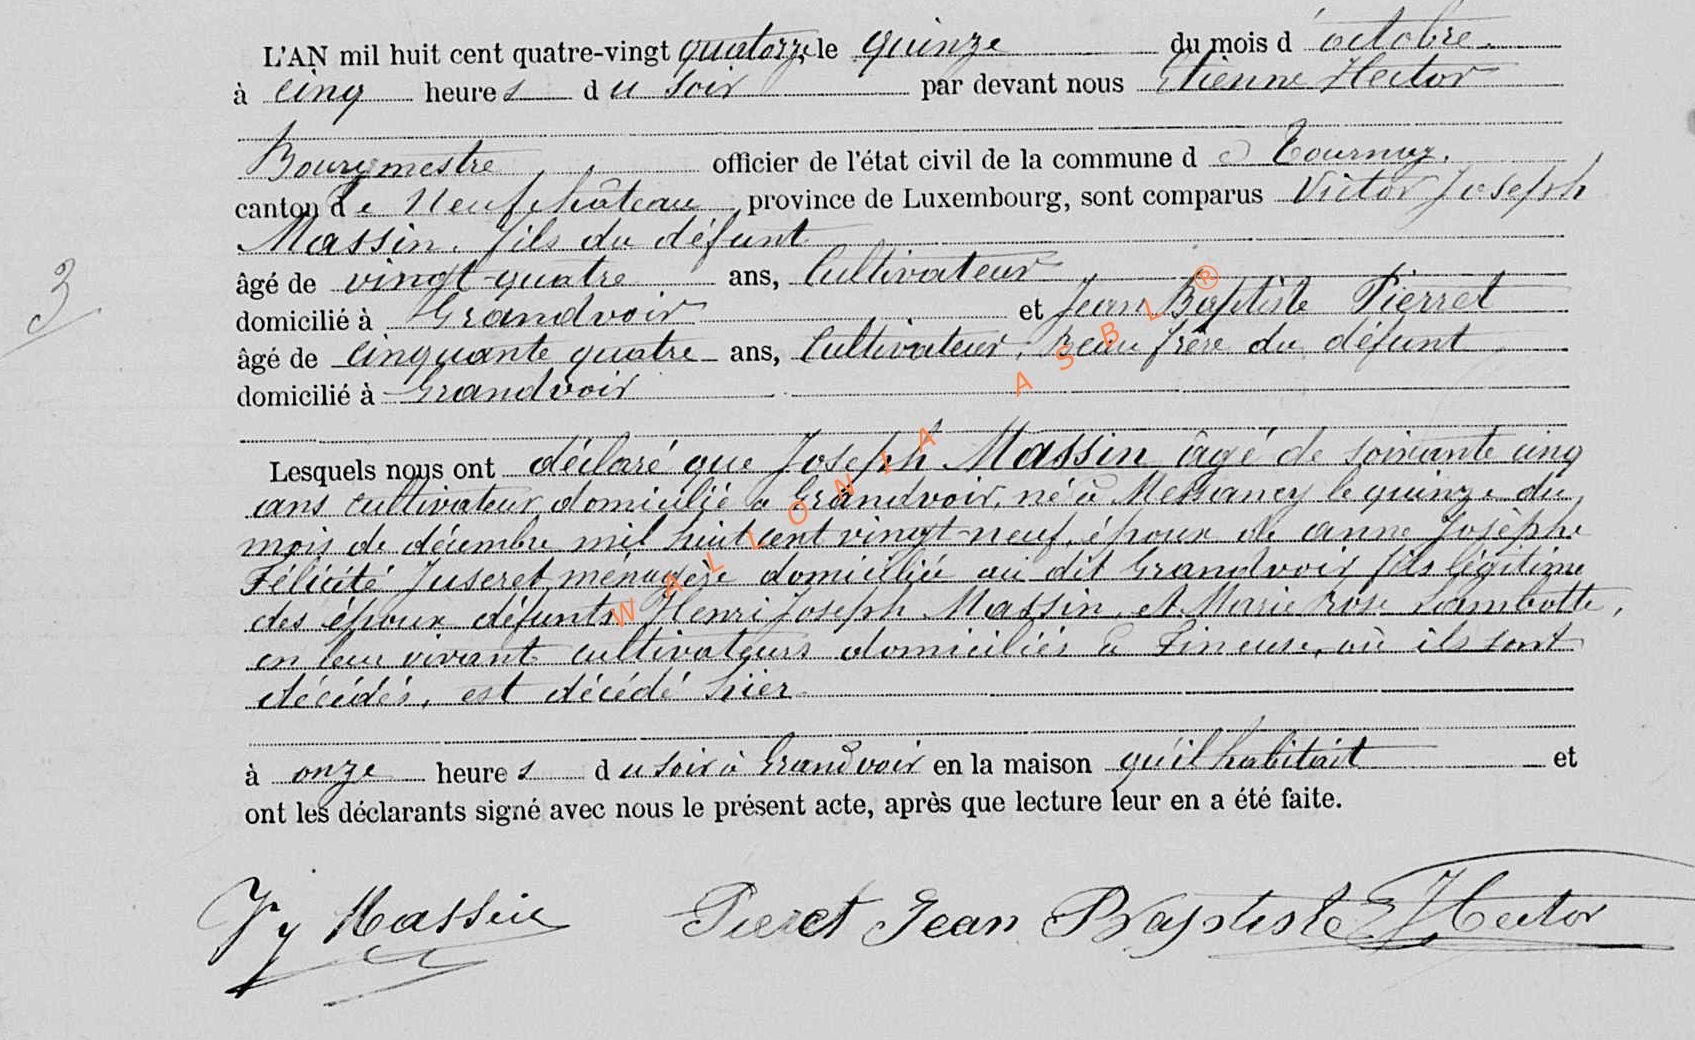 L'AN mil huit cent quatre-vingt quatorze, le quinze du mois d'octobre.
à cinq heures du soir par devant nous Etienne Hector
Bourgmestre officier de l'état civil de la commune de Tournay.
canton de Neufchâteau, province de Luxembourg, sont comparus Victor Joseph
Massin. fils du défunt
âgé de vingt-quatre ans, Cultivateur
domicilié à Grandvoir et Jean Baptiste Pierret
âgé de cinquante quatre ans, Cultivateur, Beau frère du défunt
domicilié à Grandvoir
3
Lesquels nous ont déclaré que Joseph Massin âgé de soixante cinq
ans cultivateur domicilié à Grandvoir, né à Messancy le quinze du
mois de décembre mil huit cent vingt-neuf, époux de anne Josèphe
Félicité Juseret ménagère domiciliée au dit Grandvoir fils légitime
des époux défunts Henri Joseph Massin et Marie Rose Lambotte,
en leur vivant cultivateurs domiciliés à Tineuse, où ils sont
décédés, est décédé hier
à onze heures du soir à Grandvoir en la maison qu'il habitait et
ont les déclarants signé avec nous le présent acte, après que lecture leur en a été faite.
Massin Pierret Jean Baptiste E Hector
WALLONIA ASBL ®